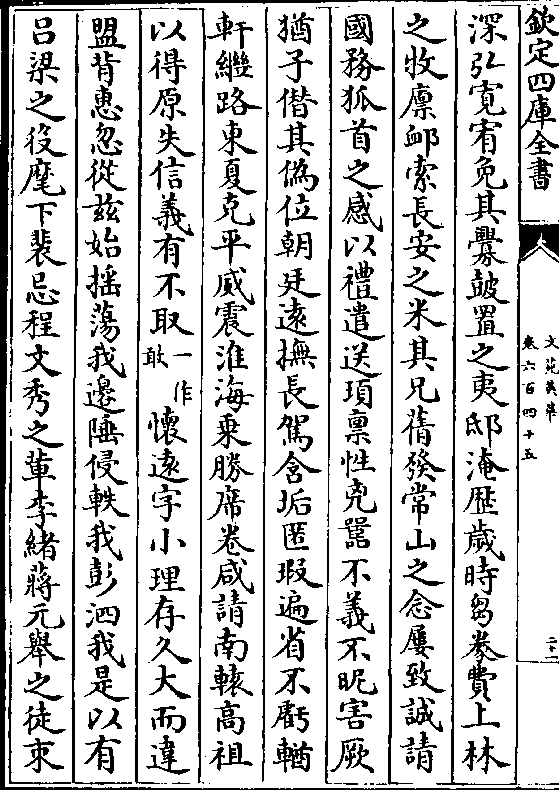 欽定四庫全書
文苑英華
卷六百四十五
二十一
深弘寛宥免其釁皷置之夷邸淹歴歳時芻豢費上林
之牧廪䘏索長安之米其兄蒨發常山之念屢致誠請
國務狐首之感以禮遣送頊禀性兇嚚不義不昵害厥
猶子僣其偽位朝廷遠撫長駕含垢匿瑕遍省不虧輶
軒繼路東夏克平威震淮海乗勝席卷咸請南轅髙祖
以得原失信義有不取一作敢懷遠字小理存久大而違
盟背惠忽從兹始揺蕩我邊陲侵軼我彭泗我是以有
吕梁之役麾下裴忌程文秀之軰李緒蔣元舉之徒束